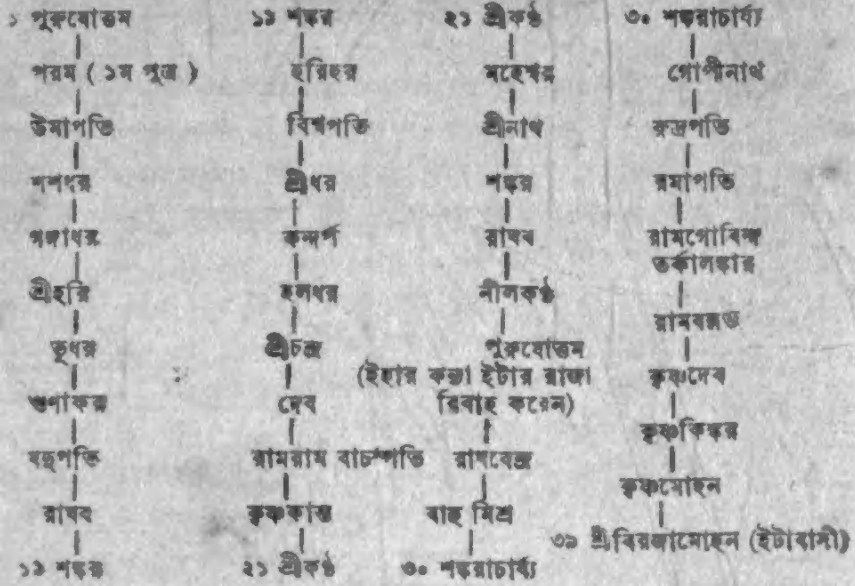 ১ পুরুষোত্তম
পরম ( ১ম পুত্র )
উমাপতি
শশধর
গঙ্গাধর
শ্রীহরি
ভূধর
গুণাকর
যদুপতি
রাঘব
১১ শঙ্কর
১১ শঙ্কর
হরিহর
বিশ্বপতি
শ্রীধর
কন্দর্প
হলধর
শ্রীচন্দ্র
দেব
রামরাম বাচস্পতি
কৃষ্ণকান্ত
২১ শ্রীকণ্ঠ
২১ শ্রীকণ্ঠ
মহেশ্বর
শ্রীনাথ
শঙ্কর
রাঘব
নীলকণ্ঠ
পুরুষোত্তম
(ইহার কন্যা ইটার রাজা
বিবাহ করেন)
রাঘবেন্দ্র
বাহু মিশ্র
৩০ শঙ্করাচার্য্য
৩০ শঙ্করাচার্য্য
গোপীনাথ
রুদ্রপতি
রমাপতি
রামগোবিন্দ
তর্কালঙ্কার
রামবল্লভ
কৃষ্ণদেব
কৃষ্ণকিঙ্কর
কৃষ্ণমোহন
৩৯ শ্রীবিরজামোহন (ইটাবাসী)